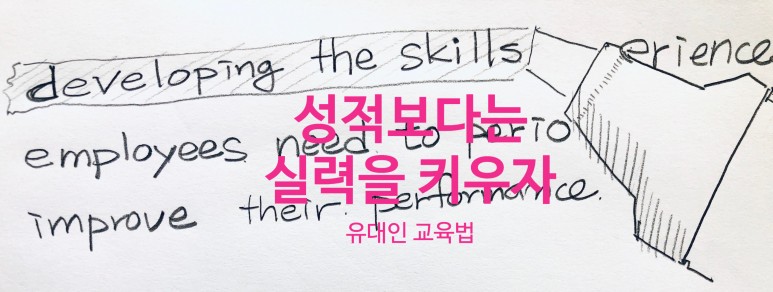 developing the skills erience
성적보다는
employees need to perio
실력을 키우자
improve their performance.
유대인 교육법